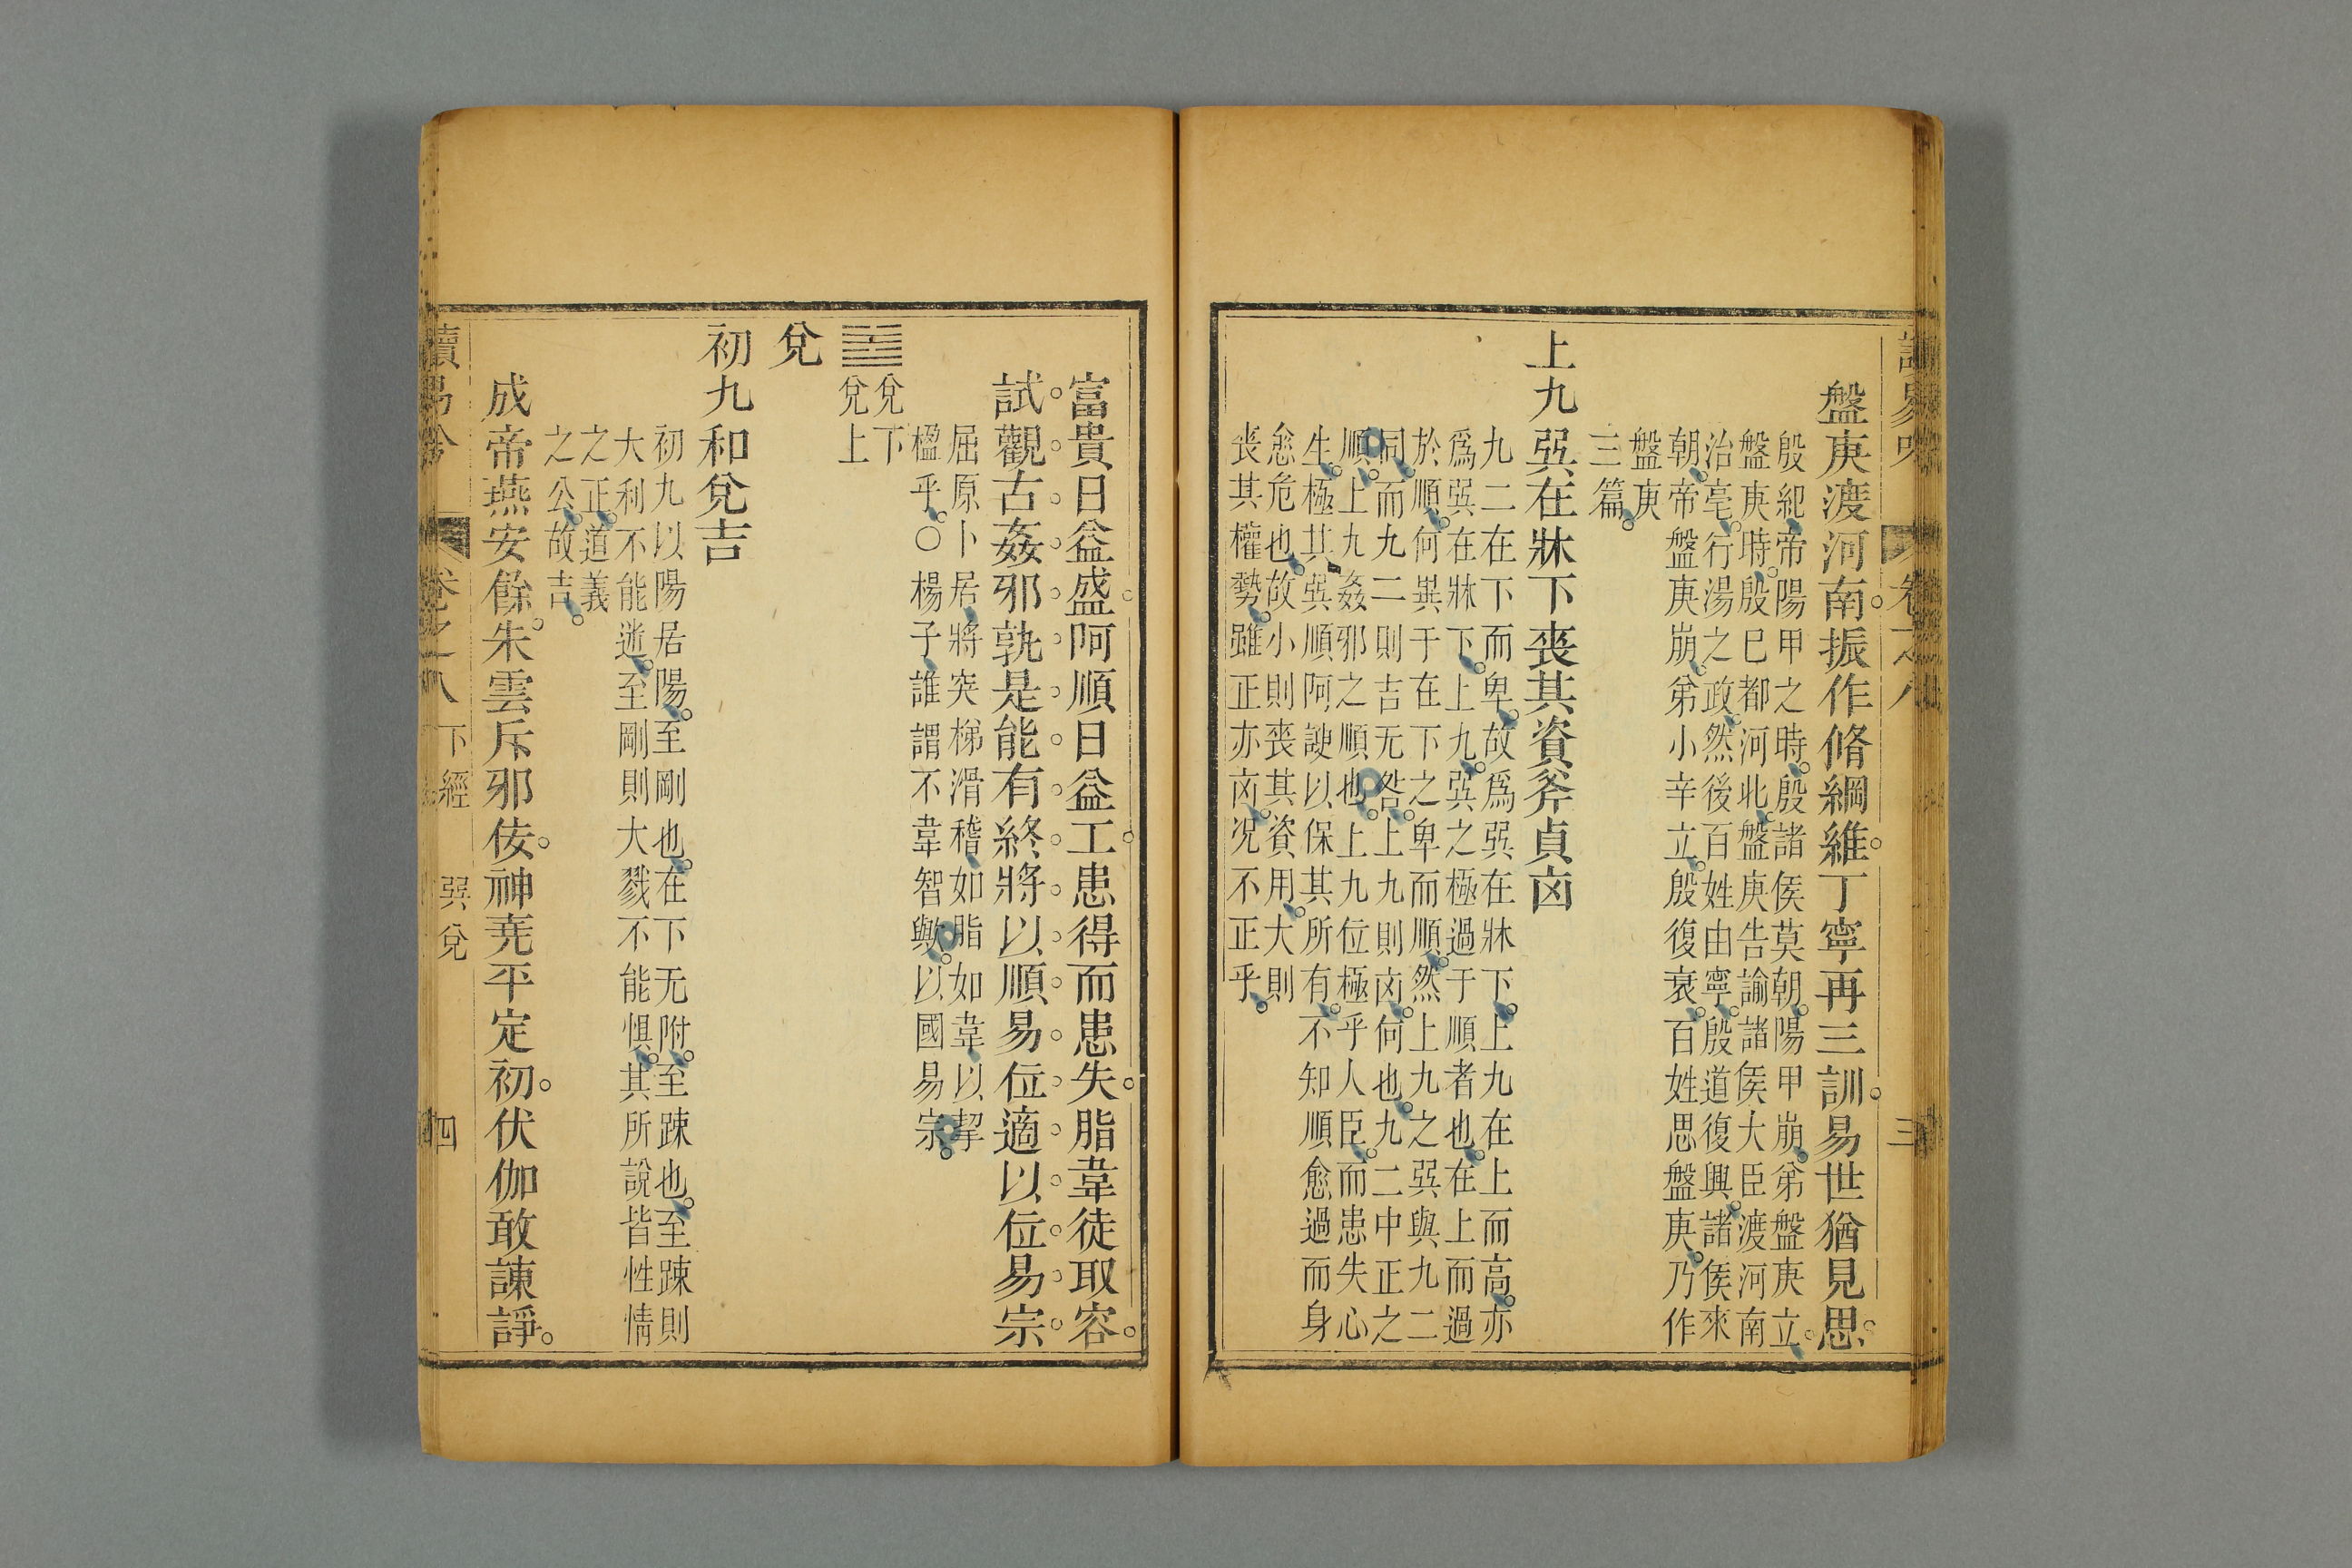 盤庚渡河南。振作脩綱維。丁寧再三訓。易世猶見思。
殷紀、帝陽甲之時。殷諸侯莫朝。陽甲崩。弟盤庚立。
盤庚時。殷已都河北。盤庚告諭諸侯大臣渡河南
治亳。行湯之政。然後百姓由寧。殷道復興。諸侯來
朝。帝盤庚崩。弟小辛立。殷復衰。百姓思盤庚。乃作
盤庚
三篇。
上九巽在牀下喪其資斧貞凶
九二在下而卑。故爲巽在牀下。上九在上而高。亦
爲巽在牀下。上九。巽之極過于順者也。在上而過
於順。何巽于在下之卑而順。然上九之巽與九二
同。而九二則吉无咎。上九則凶。何也。九二中正之
順。上九姦邪之順也。上九位極乎人臣。而患失心
生。極其巽順阿諛以保其所有。不知順愈過而身
愈危也。故小則喪其資用。大則
喪其權勢。雖正亦凶。况不正乎。
富貴日益盛。阿順日益工。患得而患失。脂韋徒取容。
試觀古姦邪孰是能有終將以順易位適以位易宗
屈原卜居、將突梯滑稽、如脂如韋、以挈
楹乎。○楊子、誰謂不韋智歟。以國易宗。
兌下
兌上
兌
初九和兌吉
初九以陽居陽。至剛也。在下无附。至踈也。至踈則
大利不能逃。至剛則大戮不能惧。其所說皆性情
之正。道義
之公。故吉。
成帝燕安餘。朱雲斥邪佞。神尭平定初。伏伽敢諫諍。
讀易吟
卷之八
下經
巽兌
四